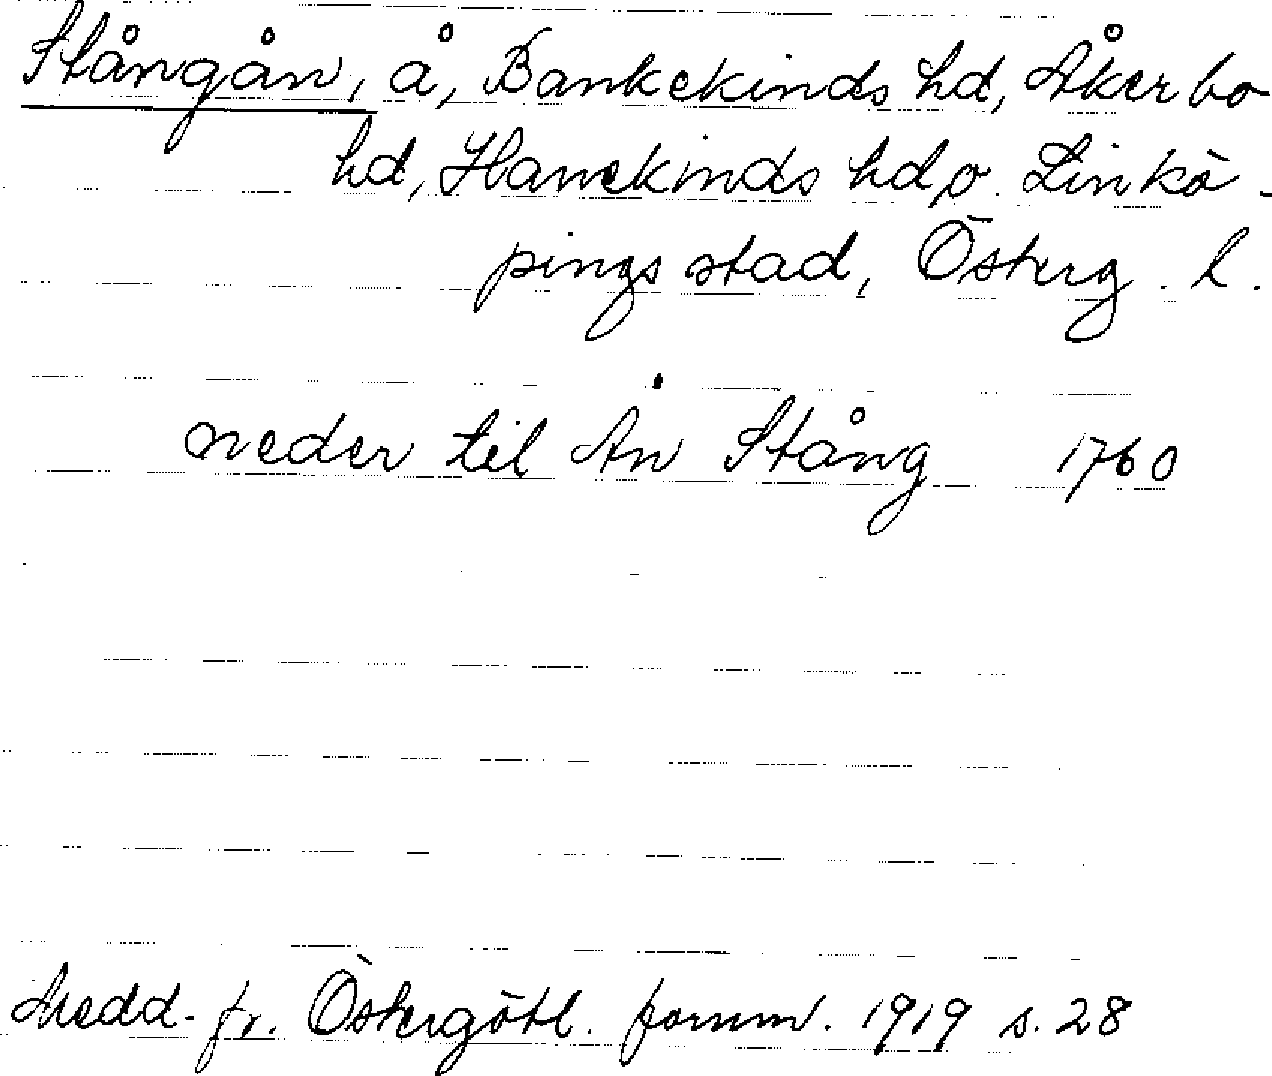 Stångån, å, Bankekinds hd, Åkerbo
hd, Hanekinds hd o. Linkö-
pings stad, Österg. l.
neder til Ån Stång 1760
Medd. fr. Östergötl. fornm. 1919 s. 28